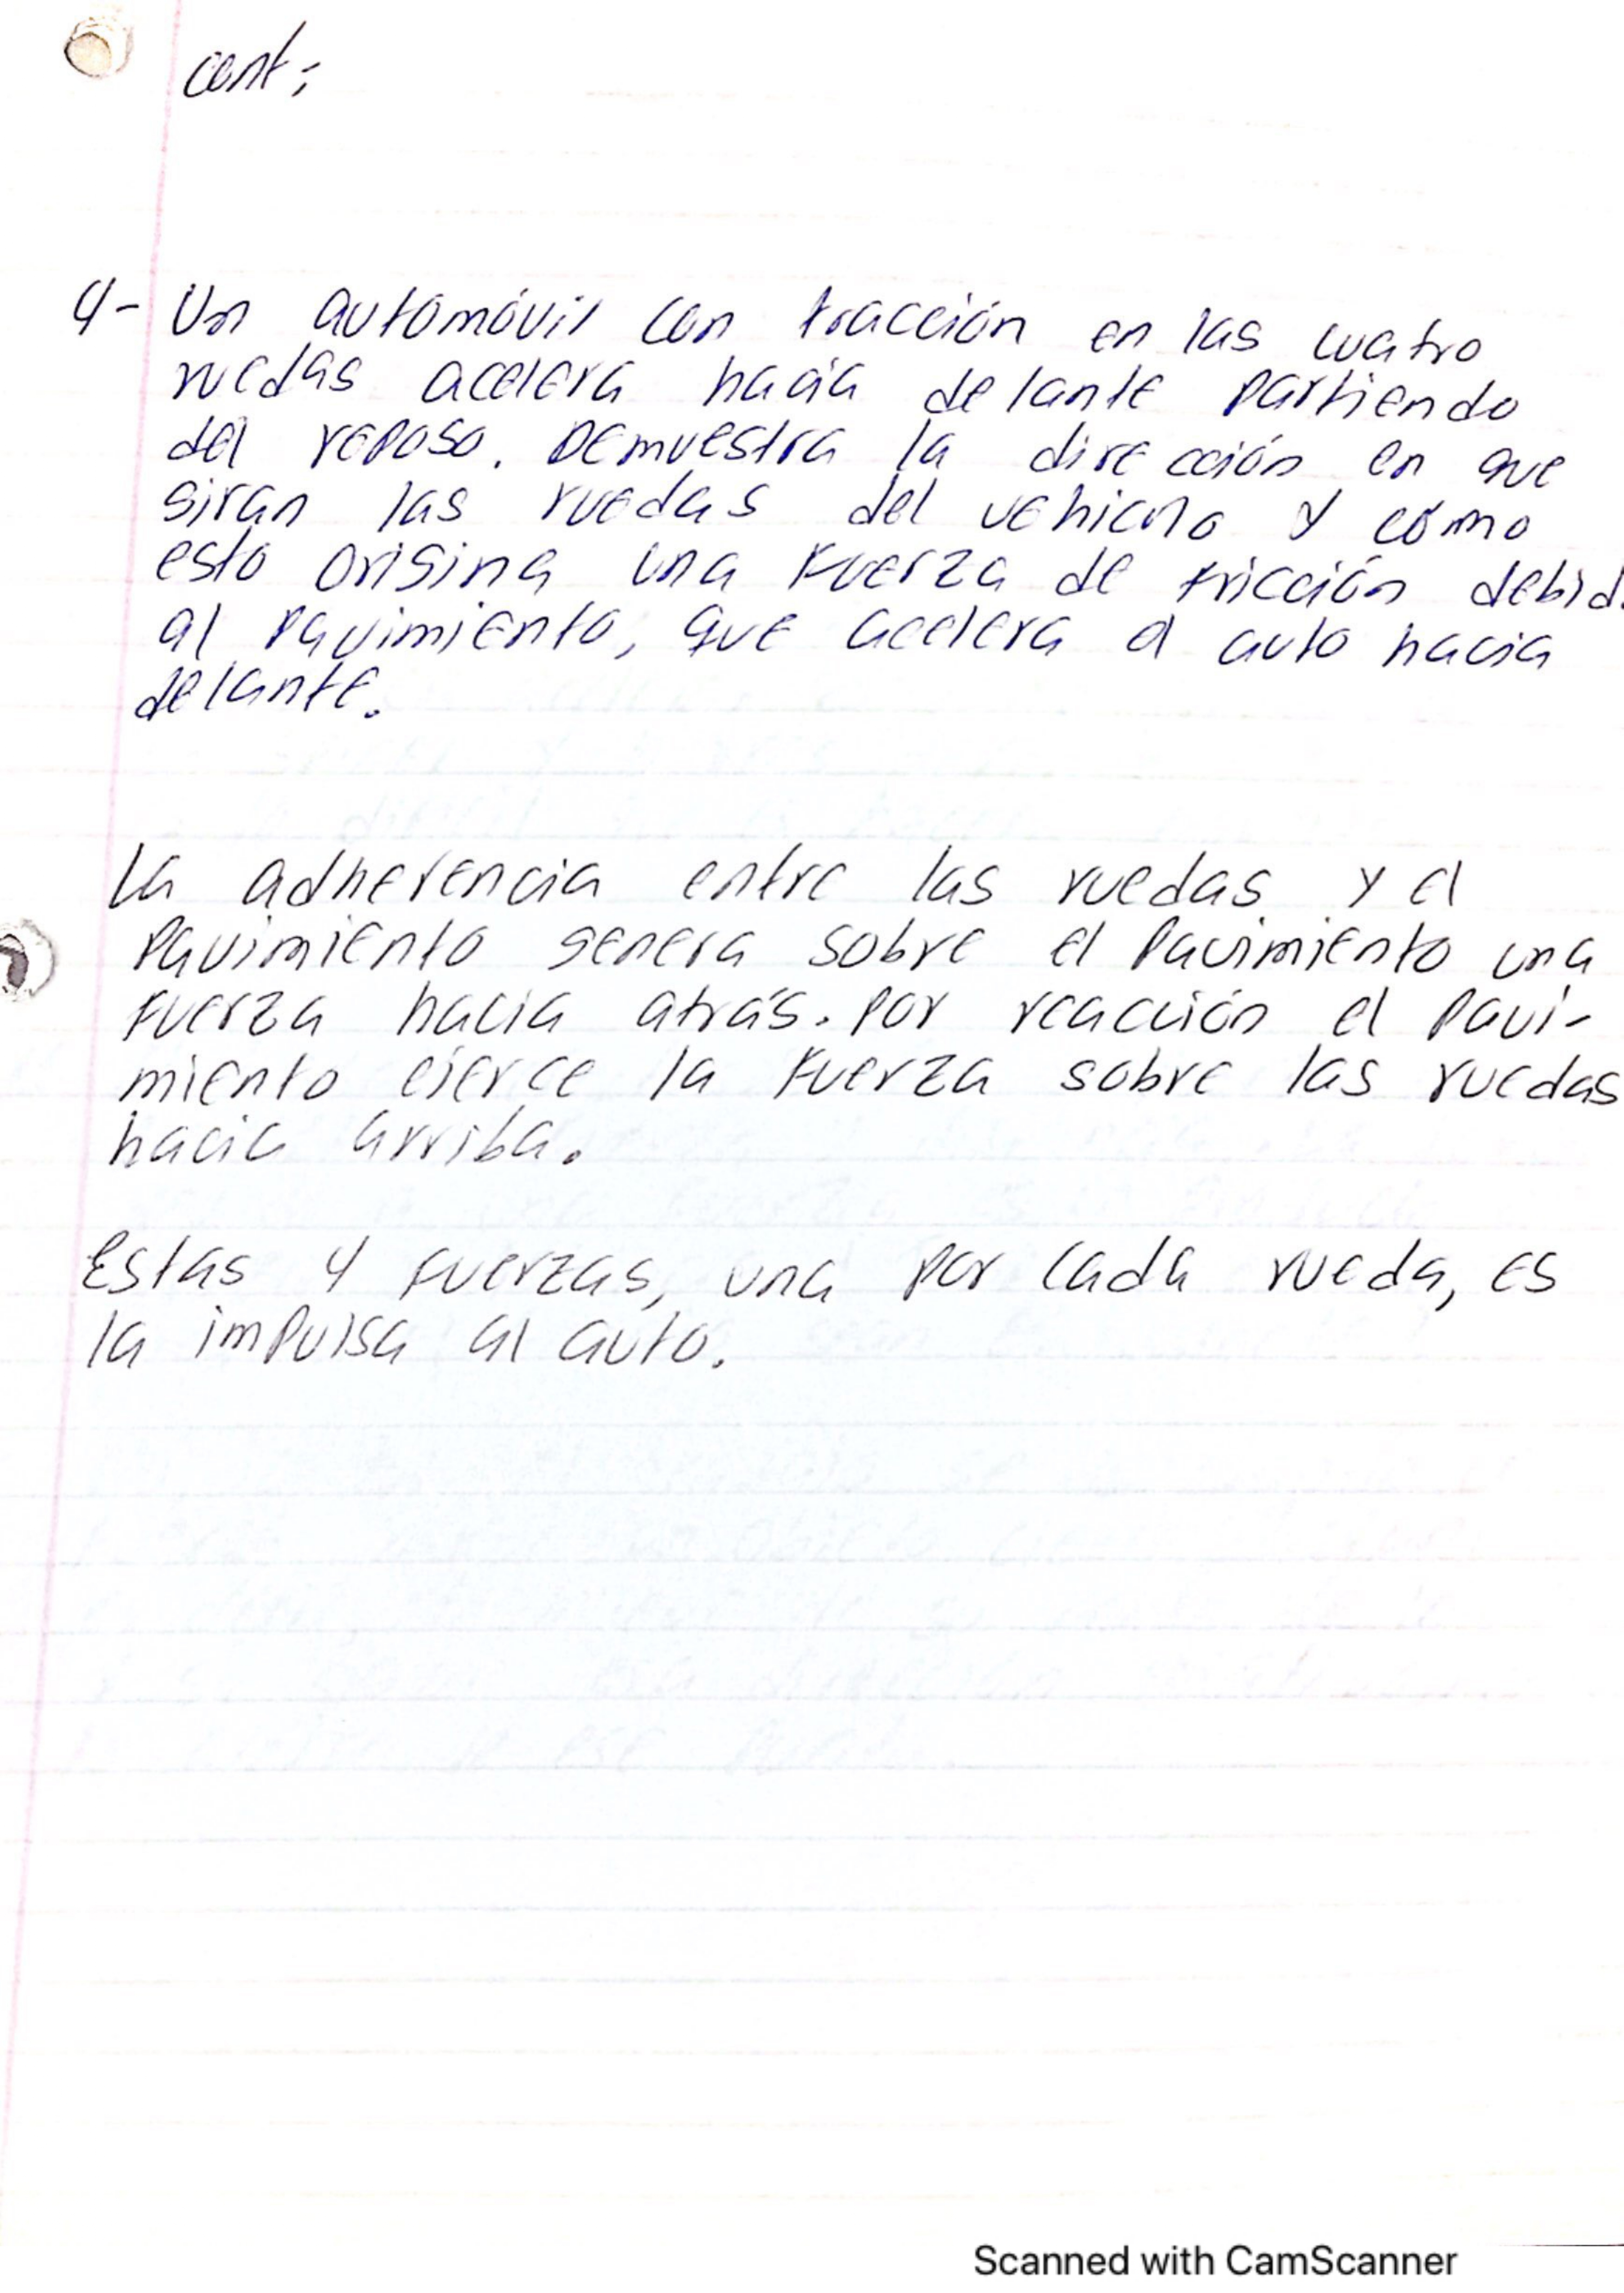 cont;
4- Un automóvil con tracción en las cuatro
ruedas acelera hacia delante partiendo
del reposo. Demuestra la dirección en que
giran las ruedas del vehiculo y como
esto origina una fuerza de fricción debid
al pavimiento, que acelera el auto hacia
delante.
La adherencia entre las ruedas y el
pavimiento genera sobre el pavimiento una
fuerza hacia atrás. Por reacción el pavi-
miento ejerce la fuerza sobre las ruedas
hacia arriba.
Estas 4 fuerzas, una por cada rueda, es
la impulsa al auto.
Scanned with CamScanner